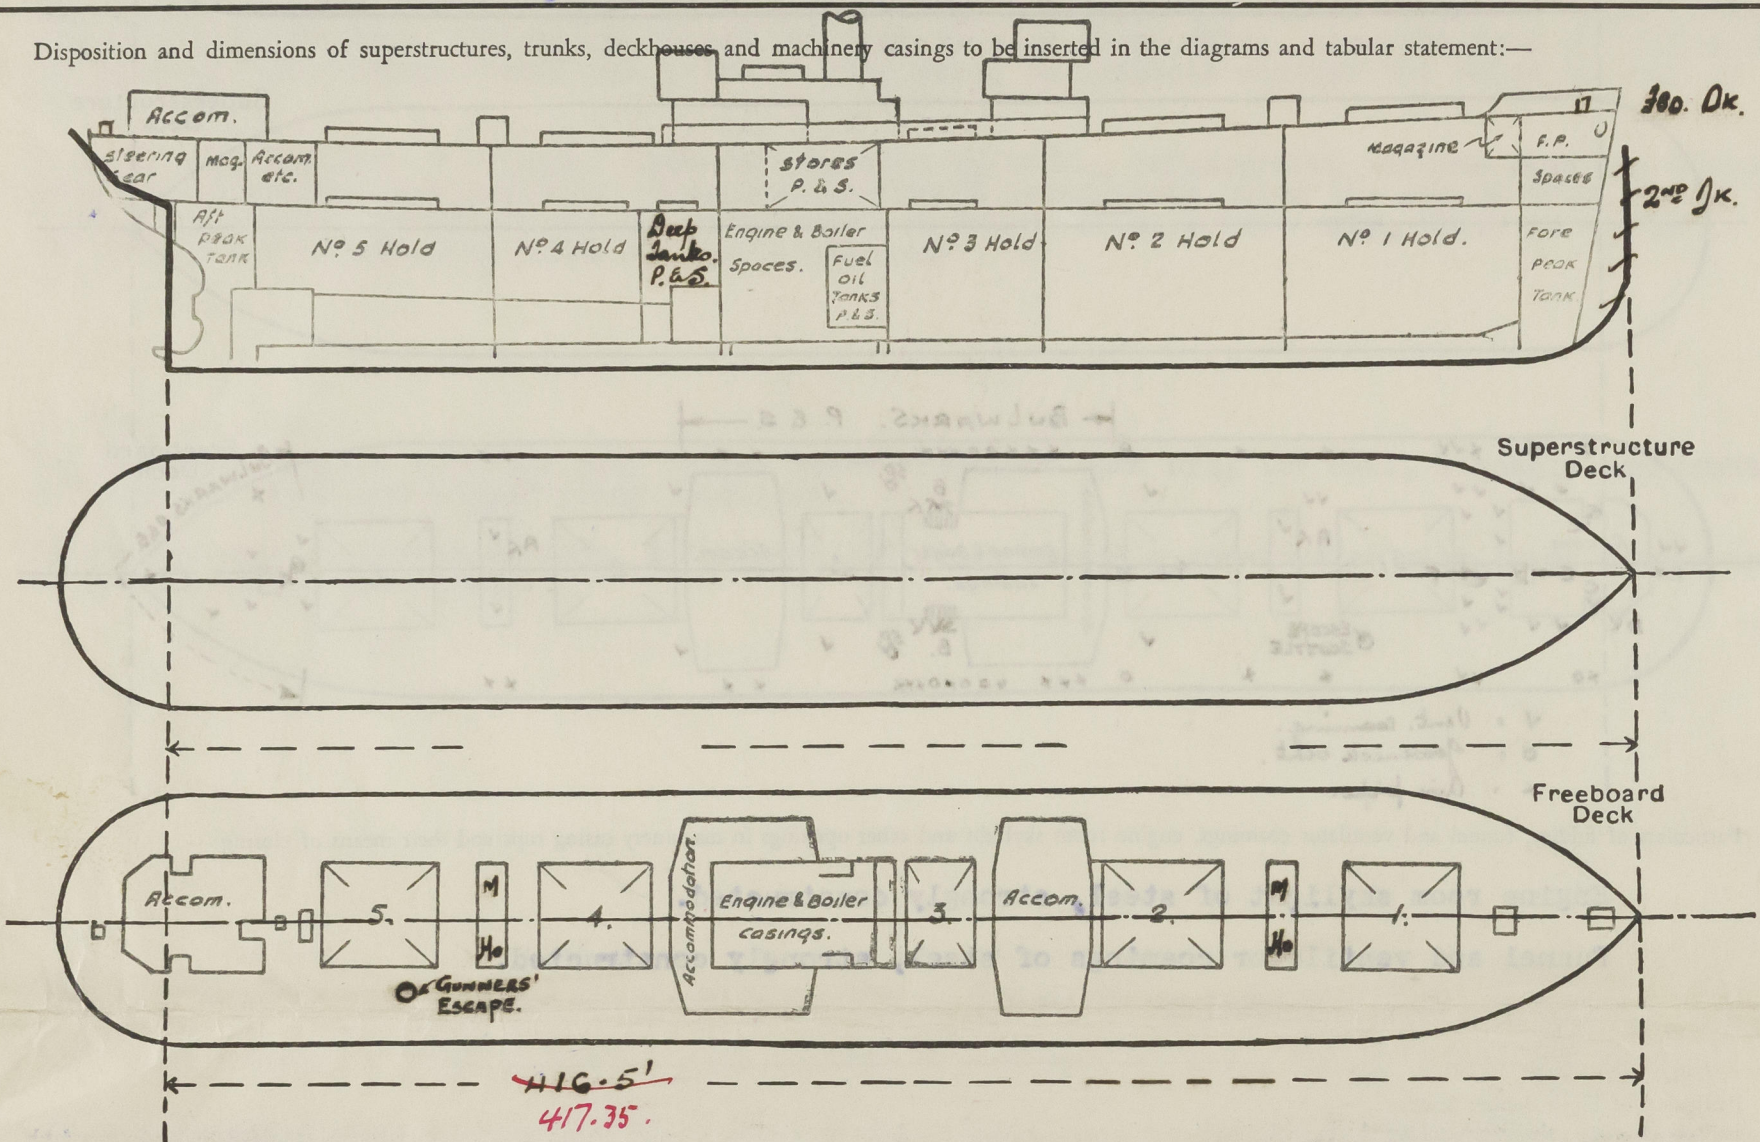 Disposition and dimensions of superstructures, trunks, deckhouses and machinery casings to be inserted in the diagrams and tabular statement:—
Accom.
Dk.
Magazine
F.P.
Steering
Gear
Mag.
Accom.
etc.
Stores
P. & S.
Spaces
2ND Dk.
Aft
Peak
Tank
No 5 Hold
No 4 Hold
Deep
Tanks.
P. & S.
Engine & Boiler
Spaces.
Fuel
Oil
Tanks
P. & S.
No 3 Hold
No 2 Hold
No 1 Hold.
Fore
Peak
Tank
Superstructure
Deck
Freeboard
Deck
Accom.
5.
M
Ho
4.
Accommodation.
Engine & Boiler
casings.
3.
Accom.
2.
M
Ho
1.
GUNNERS'
ESCAPE.
416.5'
417.35.